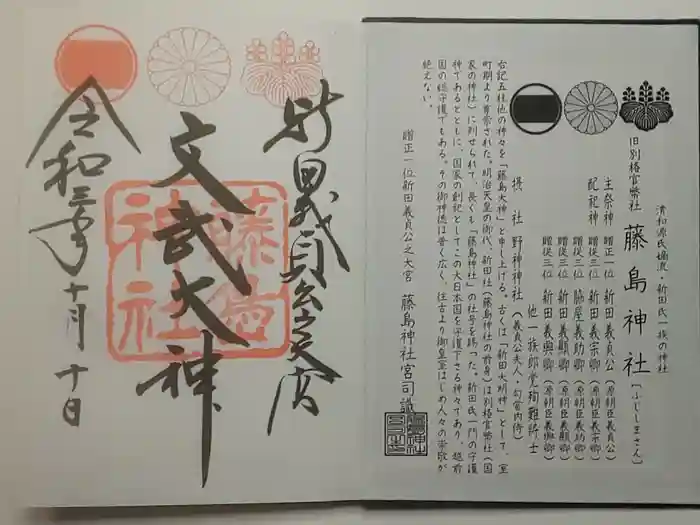 清和源氏嫡流・新田氏一族の神社
旧別格官幣社 藤島神社 [ふじしまさん]
主祭神 贈正一位 新田義貞公 (源朝臣義貞公)
配祀神 贈従三位 新田義宗卿 (源朝臣義宗卿)
贈従三位 脇屋義助卿 (源朝臣義助卿)
贈従三位 新田義顕卿 (源朝臣義顕卿)
贈従三位 新田義興卿 (源朝臣義興卿)
他一族郎党殉難将士
摂社 野神神社 (義貞公夫人・勾當内侍)
右記五柱他の神々を「藤島大神」と申し上げる。古くは「新田大明神」として、室
町期より尊崇された。明治天皇の御代、新田社(藤島神社の前身)は別格官幣社(国
家の神社)に列せられて、長くも「藤島神社」の社号を賜った。新田氏一門の守護
神であるとともに、国家の創記としてこの大日本国を守護下さる神々であり、越前
国の総守護でもある。その御神徳は普く広く、往古より御皇室はじめ人々の崇敬が
絶えない。
贈正一位新田義貞公之大宮 藤島神社宮司 謹
新田義貞公之大宮
文武大神
藤島神社
令和三年十月十日